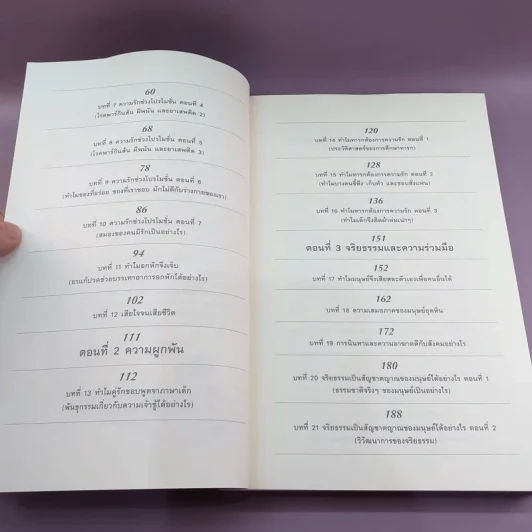 60
บทที่ 7 ความรักช่วงโปรโมชั่น ตอนที่ 4
(โรคพาร์กินสัน ผีพนัน และยาเสพติด 2)
68
บทที่ 8 ความรักช่วงโปรโมชั่น ตอนที่ 5
(โรคพาร์กินสัน ผีพนัน และยาเสพติด 3)
78
บทที่ 9 ความรักช่วงโปรโมชั่น ตอนที่ 6
(ทำไมของที่อร่อย ของที่เราชอบ มักไม่ดีกับร่างกายของเรา)
86
บทที่ 10 ความรักช่วงโปรโมชั่น ตอนที่ 7
(สมองของคนมีรักเป็นอย่างไร)
94
บทที่ 11 ทำไมอกหักจึงเจ็บ
(ยาแก้ปวดช่วยบรรเทาอาการอกหักได้อย่างไร)
102
บทที่ 12 เสียใจจนเสียชีวิต
111
ตอนที่ 2 ความผูกพัน
112
บทที่ 13 ทำไมคู่รักชอบพูดจาภาษาเด็ก
(พันธุกรรมเกี่ยวกับความเจ้าชู้ได้อย่างไร)
120
บทที่ 14 ทำไมทารกต้องการความรัก ตอนที่ 1
(ประวัติศาสตร์ของการศึกษาทารก)
128
บทที่ 15 ทำไมทารกต้องการความรัก ตอนที่ 2
(ทำไมบางคนขี้หึง เก็บตัว และชอบสังแคน)
136
บทที่ 16 ทำไมทารกต้องการความรัก ตอนที่ 3
(ทำไมเด็กจึงติดผ้าห่มเน่าๆ)
151
ตอนที่ 3 จริยธรรมและความร่วมมือ
152
บทที่ 17 ทำไมมนุษย์จึงเสียสละตัวเองเพื่อคนอื่นได้
162
บทที่ 18 ความเสมอภาคของมนุษย์ยุคหิน
172
บทที่ 19 การนินทาและความอาฆาตดีกับสังคมอย่างไร
180
บทที่ 20 จริยธรรมเป็นสัญชาตญาณของมนุษย์ได้อย่างไร ตอนที่ 1
(ธรรมชาติจริงๆ ของมนุษย์เป็นอย่างไร)
188
บทที่ 21 จริยธรรมเป็นสัญชาตญาณของมนุษย์ได้อย่างไร ตอนที่ 2
(วิวัฒนาการของจริยธรรม)